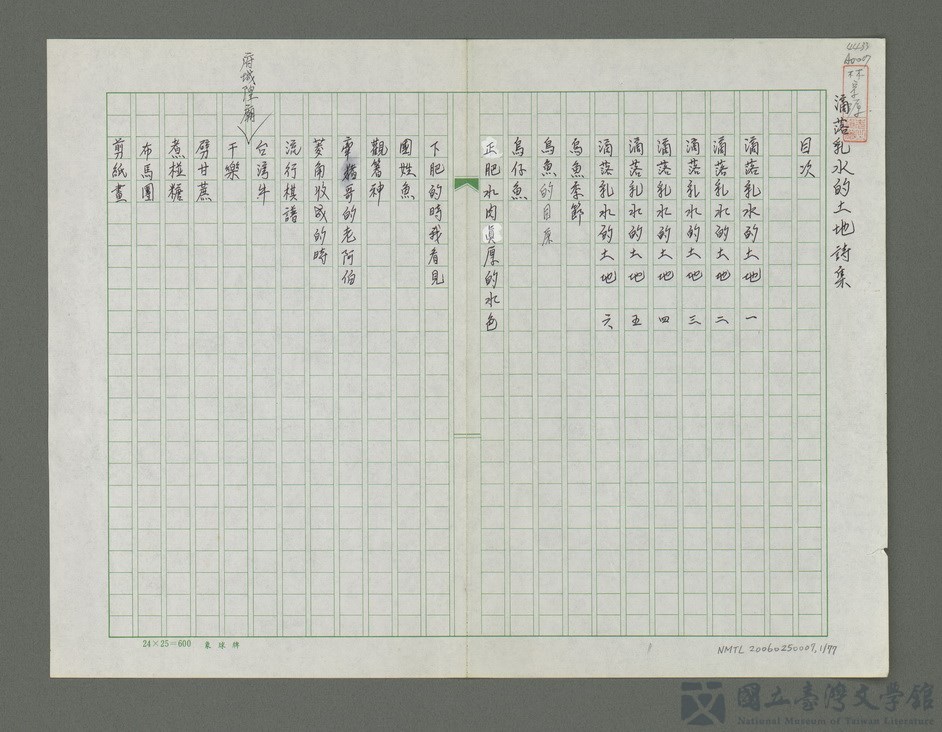 4483
A0007
滴落乳水的土地詩集
目次
滴落乳水的土地 一
滴落乳水的土地 二
滴落乳水的土地 三
滴落乳水的土地 四
滴落乳水的土地 五
滴落乳水的土地 六
烏魚季節
烏魚的目屎
烏仔魚
正肥水肉真厚的水色
下肥的時我看見
國姓魚
觀箸神
牽豬哥的老阿伯
菱角收成的時
流行棋譜
台灣牛
府城隍廟
干樂
劈甘蔗
煮椪糖
布馬團
剪紙畫
24×25=600 象球牌
NMTL 20060250007,1/77
國立臺灣文學館
National Museum of Taiwan Literature